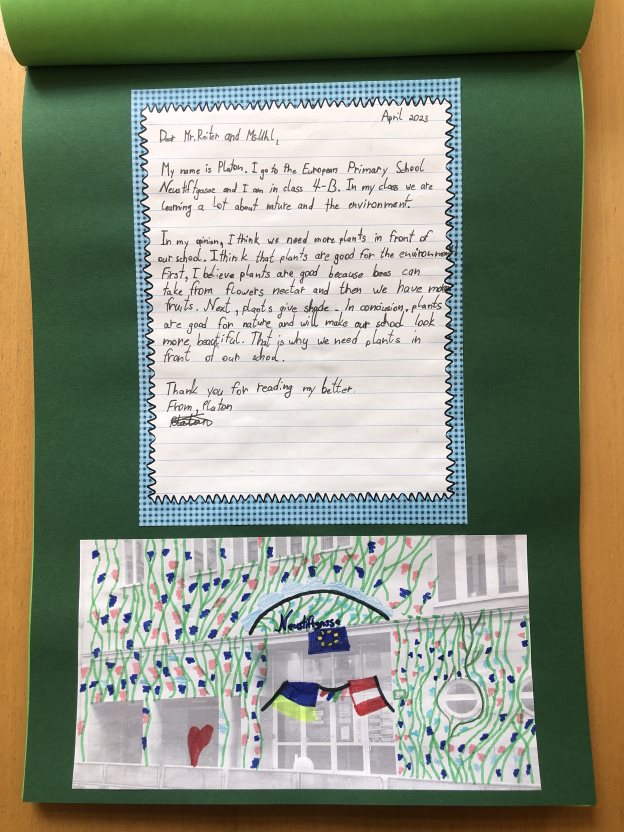 April 2023
Dear Mr. Reiter and Ms Uhl,
My name is Platon. I go to the European Primary School
Neustiftgasse and I am in class 4-B. In my class we are
learning a lot about nature and the environment.
In my opinion, I think we need more plants in front of
our school. I think that plants are good for the environment
First, I believe plants are good because bees can
take from flowers nectar and then we have more
fruits. Next, plants give shade. In conclusion, plants
are good for nature and will make our school look
more beautiful. That is why we need plants in
front of our school.
Thank you for reading my better.
From, Platon
Neustiftgasse